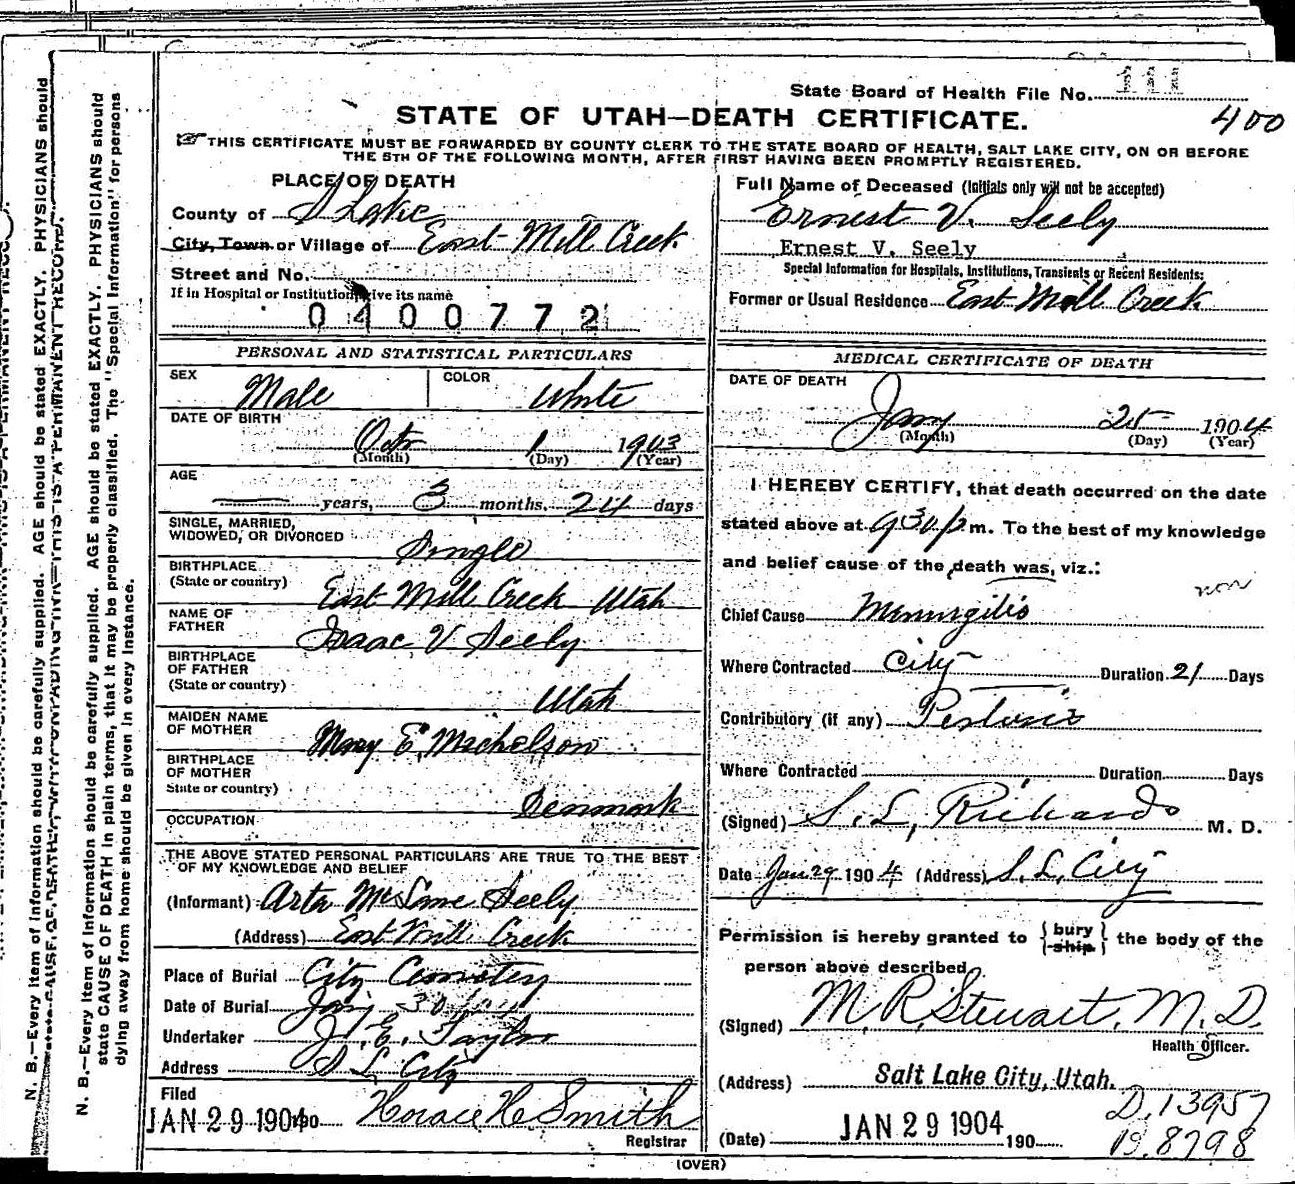 State Board of Health File No. 111
400
STATE OF UTAH—DEATH CERTIFICATE.
THIS CERTIFICATE MUST BE FORWARDED BY COUNTY CLERK TO THE STATE BOARD OF HEALTH, SALT LAKE CITY, ON OR BEFORE
THE 5TH OF THE FOLLOWING MONTH, AFTER FIRST HAVING BEEN PROMPTLY REGISTERED.
PLACE OF DEATH
County of S Lake
City, Town or Village of East Mill Creek
Street and No.
If in Hospital or Institution, give its name
0400772
Full Name of Deceased (Initials only will not be accepted)
Ernest V. Seely
Ernest V. Seely
Special Information for Hospitals, Institutions, Transients or Recent Residents:
Former or Usual Residence East Mill Creek
PERSONAL AND STATISTICAL PARTICULARS
SEX Male COLOR White
DATE OF BIRTH
Oct 1 1903
(Month) (Day) (Year)
AGE
years, 3 months, 24 days
SINGLE, MARRIED,
WIDOWED, OR DIVORCED Single
BIRTHPLACE
(State or country) East Mill Creek Utah
NAME OF
FATHER Isaac V Seely
BIRTHPLACE
OF FATHER
(State or country) Utah
MAIDEN NAME
OF MOTHER Mary E. Michelson
BIRTHPLACE
OF MOTHER
State or country) Denmark
OCCUPATION
THE ABOVE STATED PERSONAL PARTICULARS ARE TRUE TO THE BEST
OF MY KNOWLEDGE AND BELIEF
(Informant) Seely
(Address) East Mill Creek
Place of Burial City Cemetery
Date of Burial Jany 30
Undertaker J. E. Taylor
Address S L City
Filed
JAN 29 1904 190 Horace H. Smith
Registrar
MEDICAL CERTIFICATE OF DEATH
DATE OF DEATH
Jany 25 1904
(Month) (Day) (Year)
I HEREBY CERTIFY, that death occurred on the date
stated above at 930 p m. To the best of my knowledge
and belief cause of the death was, viz.:
non
Chief Cause Meningitis
Where Contracted City Duration 21 Days
Contributory (if any) Pertusis
Where Contracted Duration Days
(Signed) S. L. Richards M. D.
Date Jan 29 1904 (Address) S. L. City
Permission is hereby granted to { bury ship } the body of the
person above described.
(Signed) M. R. Stewart, M. D.
Health Officer.
(Address) Salt Lake City, Utah.
(Date) JAN 29 1904 190
D. 13957
B. 8798
(OVER)
N. B.—Every item of information should be carefully supplied. AGE should be stated EXACTLY. PHYSICIANS should
state CAUSE OF DEATH in plain terms, that it may be properly classified. The "Special Information" for persons
dying away from home should be given in every instance.
N. B.—Every item of information should be carefully supplied. AGE should be stated EXACTLY. PHYSICIANS should